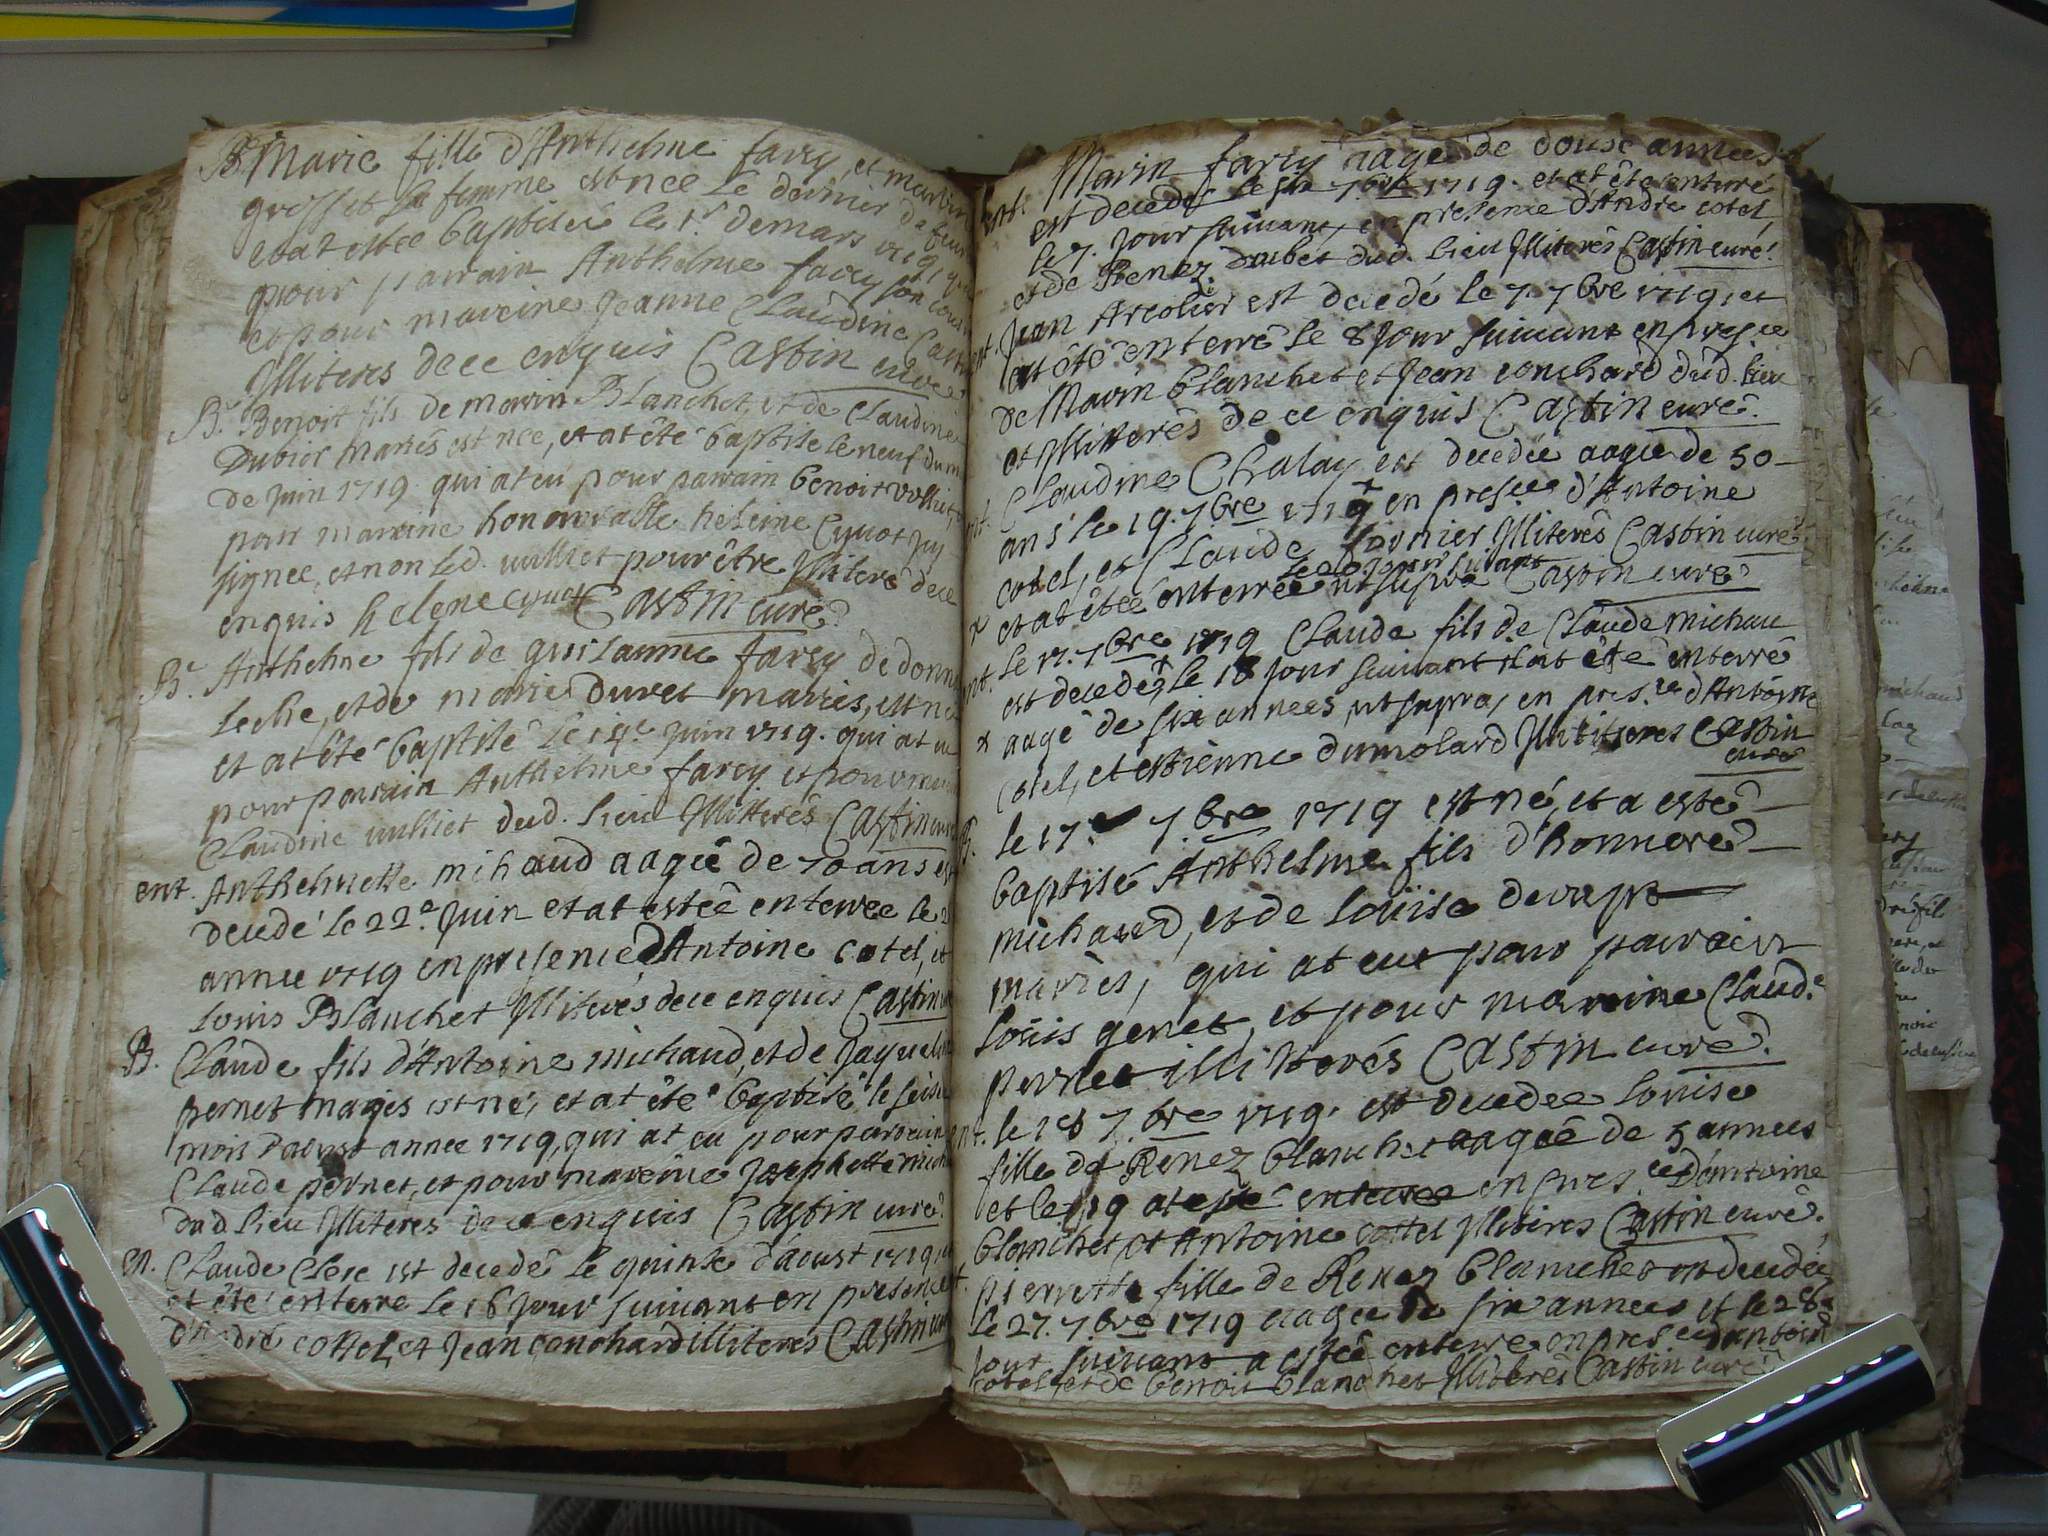 Bt Marie fille d'Anthelme farcy, et
grosset sa femme est nee le dernier de
et at estee baptisee le 1r. de mars 1719
pour parrain Anthelme farcy son cousin
et pour mareine Jeanne Claudine
Illiteres de ce enquis Castin curé
Bt. Benoit fils de marin Blanchet, et de Claudine
Dubior mariés est nee, et at êté baptise le neuf du
de Juin 1719 qui at eu pour parrain benoit vulliet,
pour maraine honnorable heleine Cynot
signee, et non led. vulliet pour être Illiteré de ce
enquis helene cynot Castin curé
Bt. Anthelme fils de guilaume farcy de
et de marie Duret mariés, est né
et at êté baptisé le Juin 1719. qui at eu
pour parrain Anthelme farcy et pour
Claudine vulliet dud. lieu Illitterés Castin curé
ent. Anthelmette mihaud aagée de 70 ans est
decedé le 22e. Juin et at estée enterree le
annee 1719 en presence d'Antoine cotel, et
Louis Blanchet Illiterés de ce enquis Castin
B. Claude fils d'Antoine michaud, et de Jaqueline
pernet mariés est né, et at êté baptisé le
mois d'aoust annee 1719, qui at eu pour parrain
Claude pernet, et pour mareine Josephette
dud. lieu Illiteres de ce enquis Castin curé
en. Claude Clerc est decedé le quinse d'aoust 1719, et
at êté enterre le 16 jour suivant en presence
d'André cottel, et Jean conchard illiteres Castin curé
ent. Marin farcy aagé de douse annees
est decedes le 7bre 1719. et at êté enterré
le 7. jour suivant, en presence d'André cotel
et de Renez dubet dud. lieu Illiterés Castin curé
ent. Jean Arcolier est decedé le 7. 7bre 1719, et
at êté enterré le 8 jour suivant en presce
de Marin blanchet et Jean conchard dud. lieu
et Illitterés de ce enquis Castin curé
ent. Claudine Chalay est decedée aagée de 50
ans le 19. 7bre 1719 en presce d'Antoine
cotel, et Claude fornier Illiterés Castin curé
le 20 jour suivant
et at êtée enterrée ut supra Castin curé
x
ent. le 17. 7bre 1719 Claude fils de Claude michau
est decedé, le 18 jour suivant ilat êté enterré
x aagé de six annees, ut supra, en pres.ce d'Antoine
Cotel, et estienne dumolard Illitteres Castin
curé
B. le 17e 7.bre 1719 est né, et a esté
baptisé Anthelme fils d'honnoré
michaud, et de Loüise
mariés, qui at eut pour parrain
Loüis genet, et pour maraine Claud.e
pernet illitterés Castin curé
ent. le 18 7.bre 1719. est decedee Louise
fille de Renez blanchet aagée de 5 annees
et le 19 at esté enterree en pres.ce d'Antoine
blanchet, et Antoine cottel Illiteres Castin curé.
ent. pierrette fille de Renez blanchet est decedée
le 27. 7.bre 1719 aagee de six annees et le 28
jour suivant a estée enterree en presce d'antoine
cotel, et de benoit blanchet Illiterés Castin curé